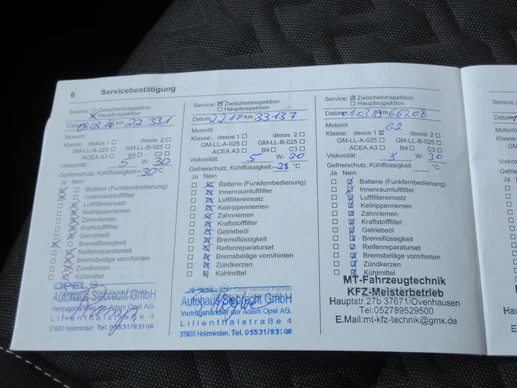 6 Servicebestätigung
Service: Zwischeninspektion
Hauptinspektion
Datum 04.03.16 km 22 331
Motoröl
Klasse: dexos 1 dexos 2
GM-LL-A-025 GM-LL-B-025
ACEA A3 B4 C3
Viskosität 5 W- 30
Gefrierschutz, Kühlflüssigkeit -30 °C
Ja Nein
Batterie (Funkfernbedienung)
Innenraumluftfilter
Luftfiltereinsatz
Keilrippenriemen
Zahnriemen
Kraftstofffilter
Getriebeöl
Bremsflüssigkeit
Reifenreparaturset
Bremsbeläge vorn/hinten
Zündkerzen
Kühlmittel
OPEL
Autohaus Siebrecht GmbH
Vertragshändler der Adam Opel AG
Lilienthalstraße 4
37603 Holzminden, Tel. 05531/93
Service: Zwischeninspektion
Hauptinspektion
Datum km 33137
Motoröl
Klasse: dexos 1 dexos 2
GM-LL-A-025 GM-LL-B-025
ACEA A3 B4 C3
Viskosität 5 W- 30
Gefrierschutz, Kühlflüssigkeit -28 °C
Ja Nein
Batterie (Funkfernbedienung)
Innenraumluftfilter
Luftfiltereinsatz
Keilrippenriemen
Zahnriemen
Kraftstofffilter
Getriebeöl
Bremsflüssigkeit
Reifenreparaturset
Bremsbeläge vorn/hinten
Zündkerzen
Kühlmittel
Autohaus Siebrecht GmbH
Vertragshändler der Adam Opel AG
Lilienthalstraße 4
37603 Holzminden, Tel. 05531/93
Service: Zwischeninspektion
Hauptinspektion
Datum km 66208
Motoröl
Klasse: dexos 1 dexos 2
GM-LL-A-025 GM-LL-B-025
ACEA A3 B4 C3
Viskosität 5 W- 30
Gefrierschutz, Kühlflüssigkeit °C
Ja Nein
Batterie (Funkfernbedienung)
Innenraumluftfilter
Luftfiltereinsatz
Keilrippenriemen
Zahnriemen
Kraftstofffilter
Getriebeöl
Bremsflüssigkeit
Reifenreparaturset
Bremsbeläge vorn/hinten
Zündkerzen
Kühlmittel
MT-Fahrzeugtechnik
KFZ-Meisterbetrieb
Hauptstr.27b 37671/Ovenhausen
Tel.052789529500
E.Mail:mt-kfz-technik@gmx.de